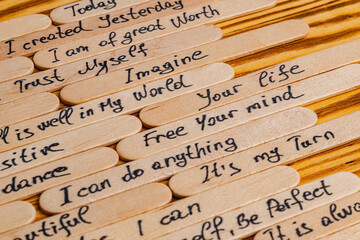 Today
I created Yesterday
I am of great Worth
Trust Myself
Imagine
ll is well in My World
Your life
Free Your mind
sitive
dance
I can do anything
It's my Turn
eautiful
I can
self, Be Perfect
It is alwa